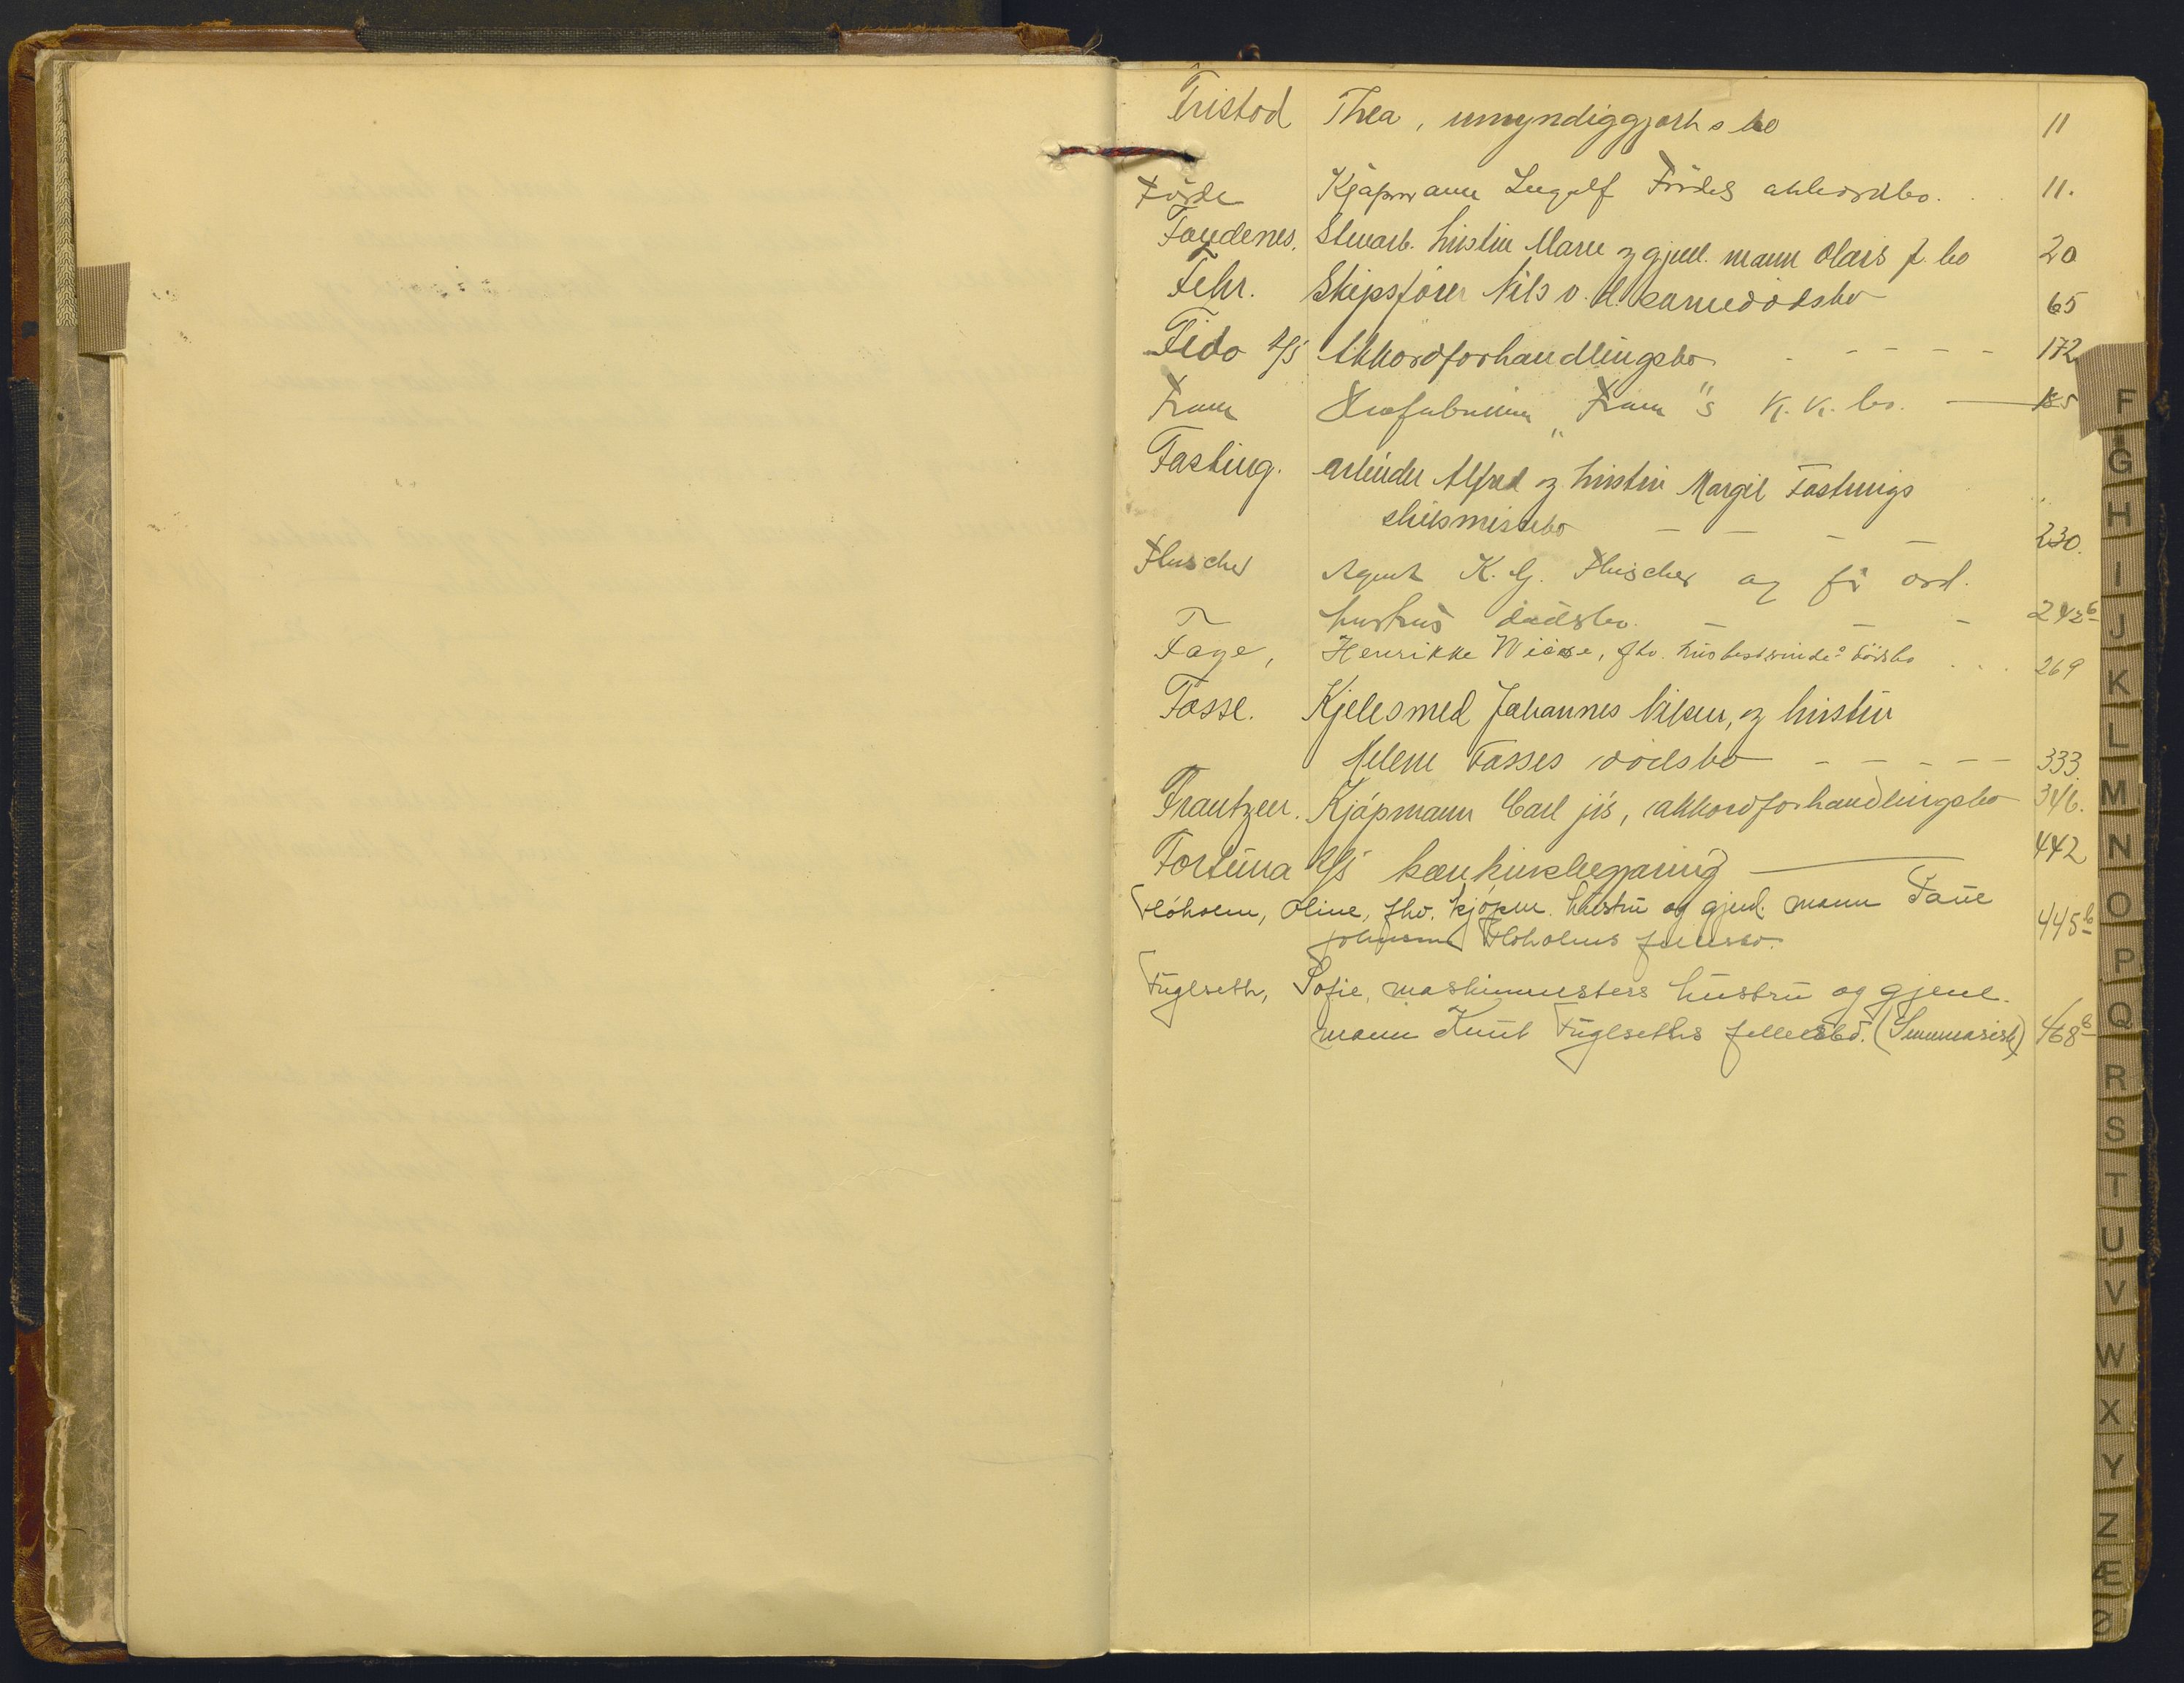 Tristod Thea, umyndiggjorts bo 11
Förde Kjøpmann Ingolf Fördes akkordbo. 11.
Faudenes. Stuearb. hustru Marie og gjenl. mann Olais f. bo 20
Fehr. Skipsfører Nils v. d. dødsbo 65
Fido A/S Akkordforhandlingsbo 172
Fram Skofabrikken „Fram"s K.K. bo. 185
Fasting. arbeider Alfred og hustru Margit Fastings
skilsmissebo 230.
Fluscher Agent K. G. Fluscher og ord.
hustrus dødsbo. 242b
Fage, Henrikke Wiese, fhv. husbestyrinde's dödsbo 269
Fosse. Kjelesmed Johannes Nilsen, og hustru
Helene Fosses dödsbo 333.
Frantzen. Kjøpmann Carl jr's, akkordforhandlingsbo 346.
Fortuna A/S konkursbegjæring 442
Flöholm, Oline, fhv. kjøpm. hustru og gjenl. mann Taue
Johnsen Floholms fellesbo. 445b
Fuglseth, Sofie, maskinmesters hustru og gjenl.
mann Knut Fuglseths fellesbo. (Summarisk) 468b
F
G
H
I
J
K
L
M
N
O
P
Q
R
S
T
U
V
W
X
Y
Z
Æ
Ø